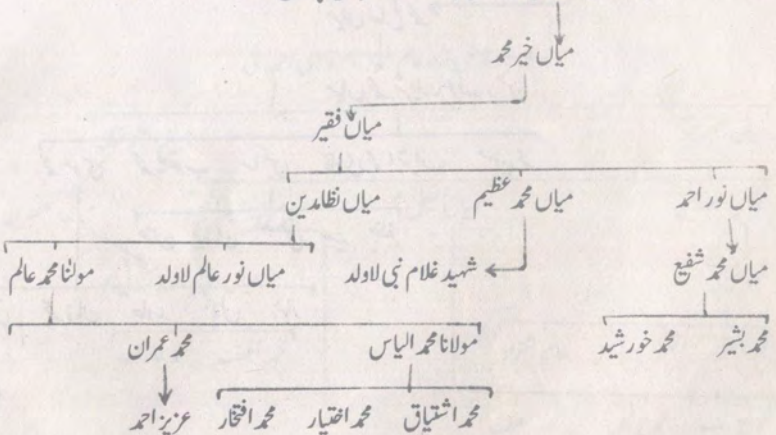 میاں خیر محمد
میاں فقیر
میاں نور احمد میاں محمد عظیم میاں نظامدین
میاں محمد شفیع شہید غلام نبی لاولد میاں نور عالم لاولد مولٰنا محمد عالم
محمد بشیر محمد خورشید مولانا محمد الیاس محمد عمران
محمد اشتیاق محمد اختیار محمد افتخار عزیز احمد